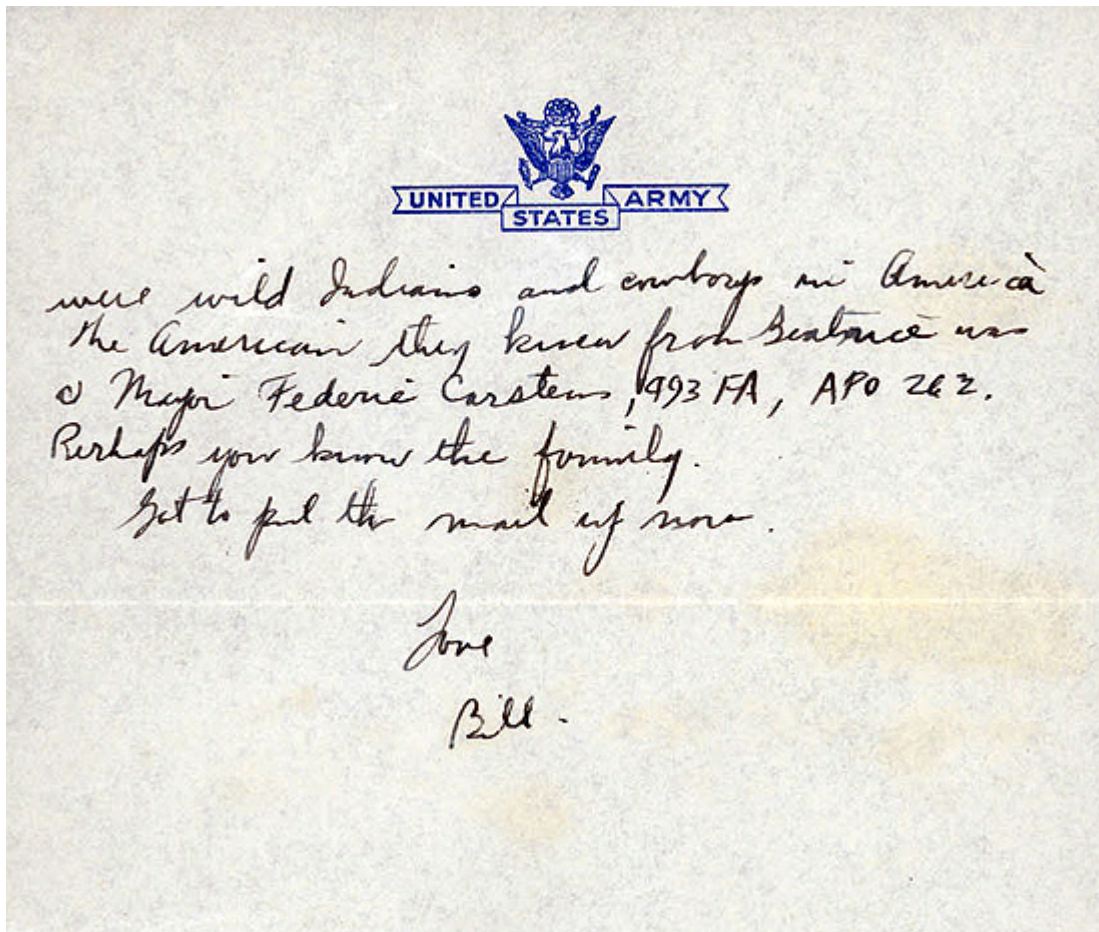 UNITED STATES ARMY
were wild Indians and cowboys in America
the American they knew from Beatrice was
a Major Federie Carstens, 493 FA, APO 262.
Perhaps you know the family.
Got to put the mail up now.
Love
Bill.